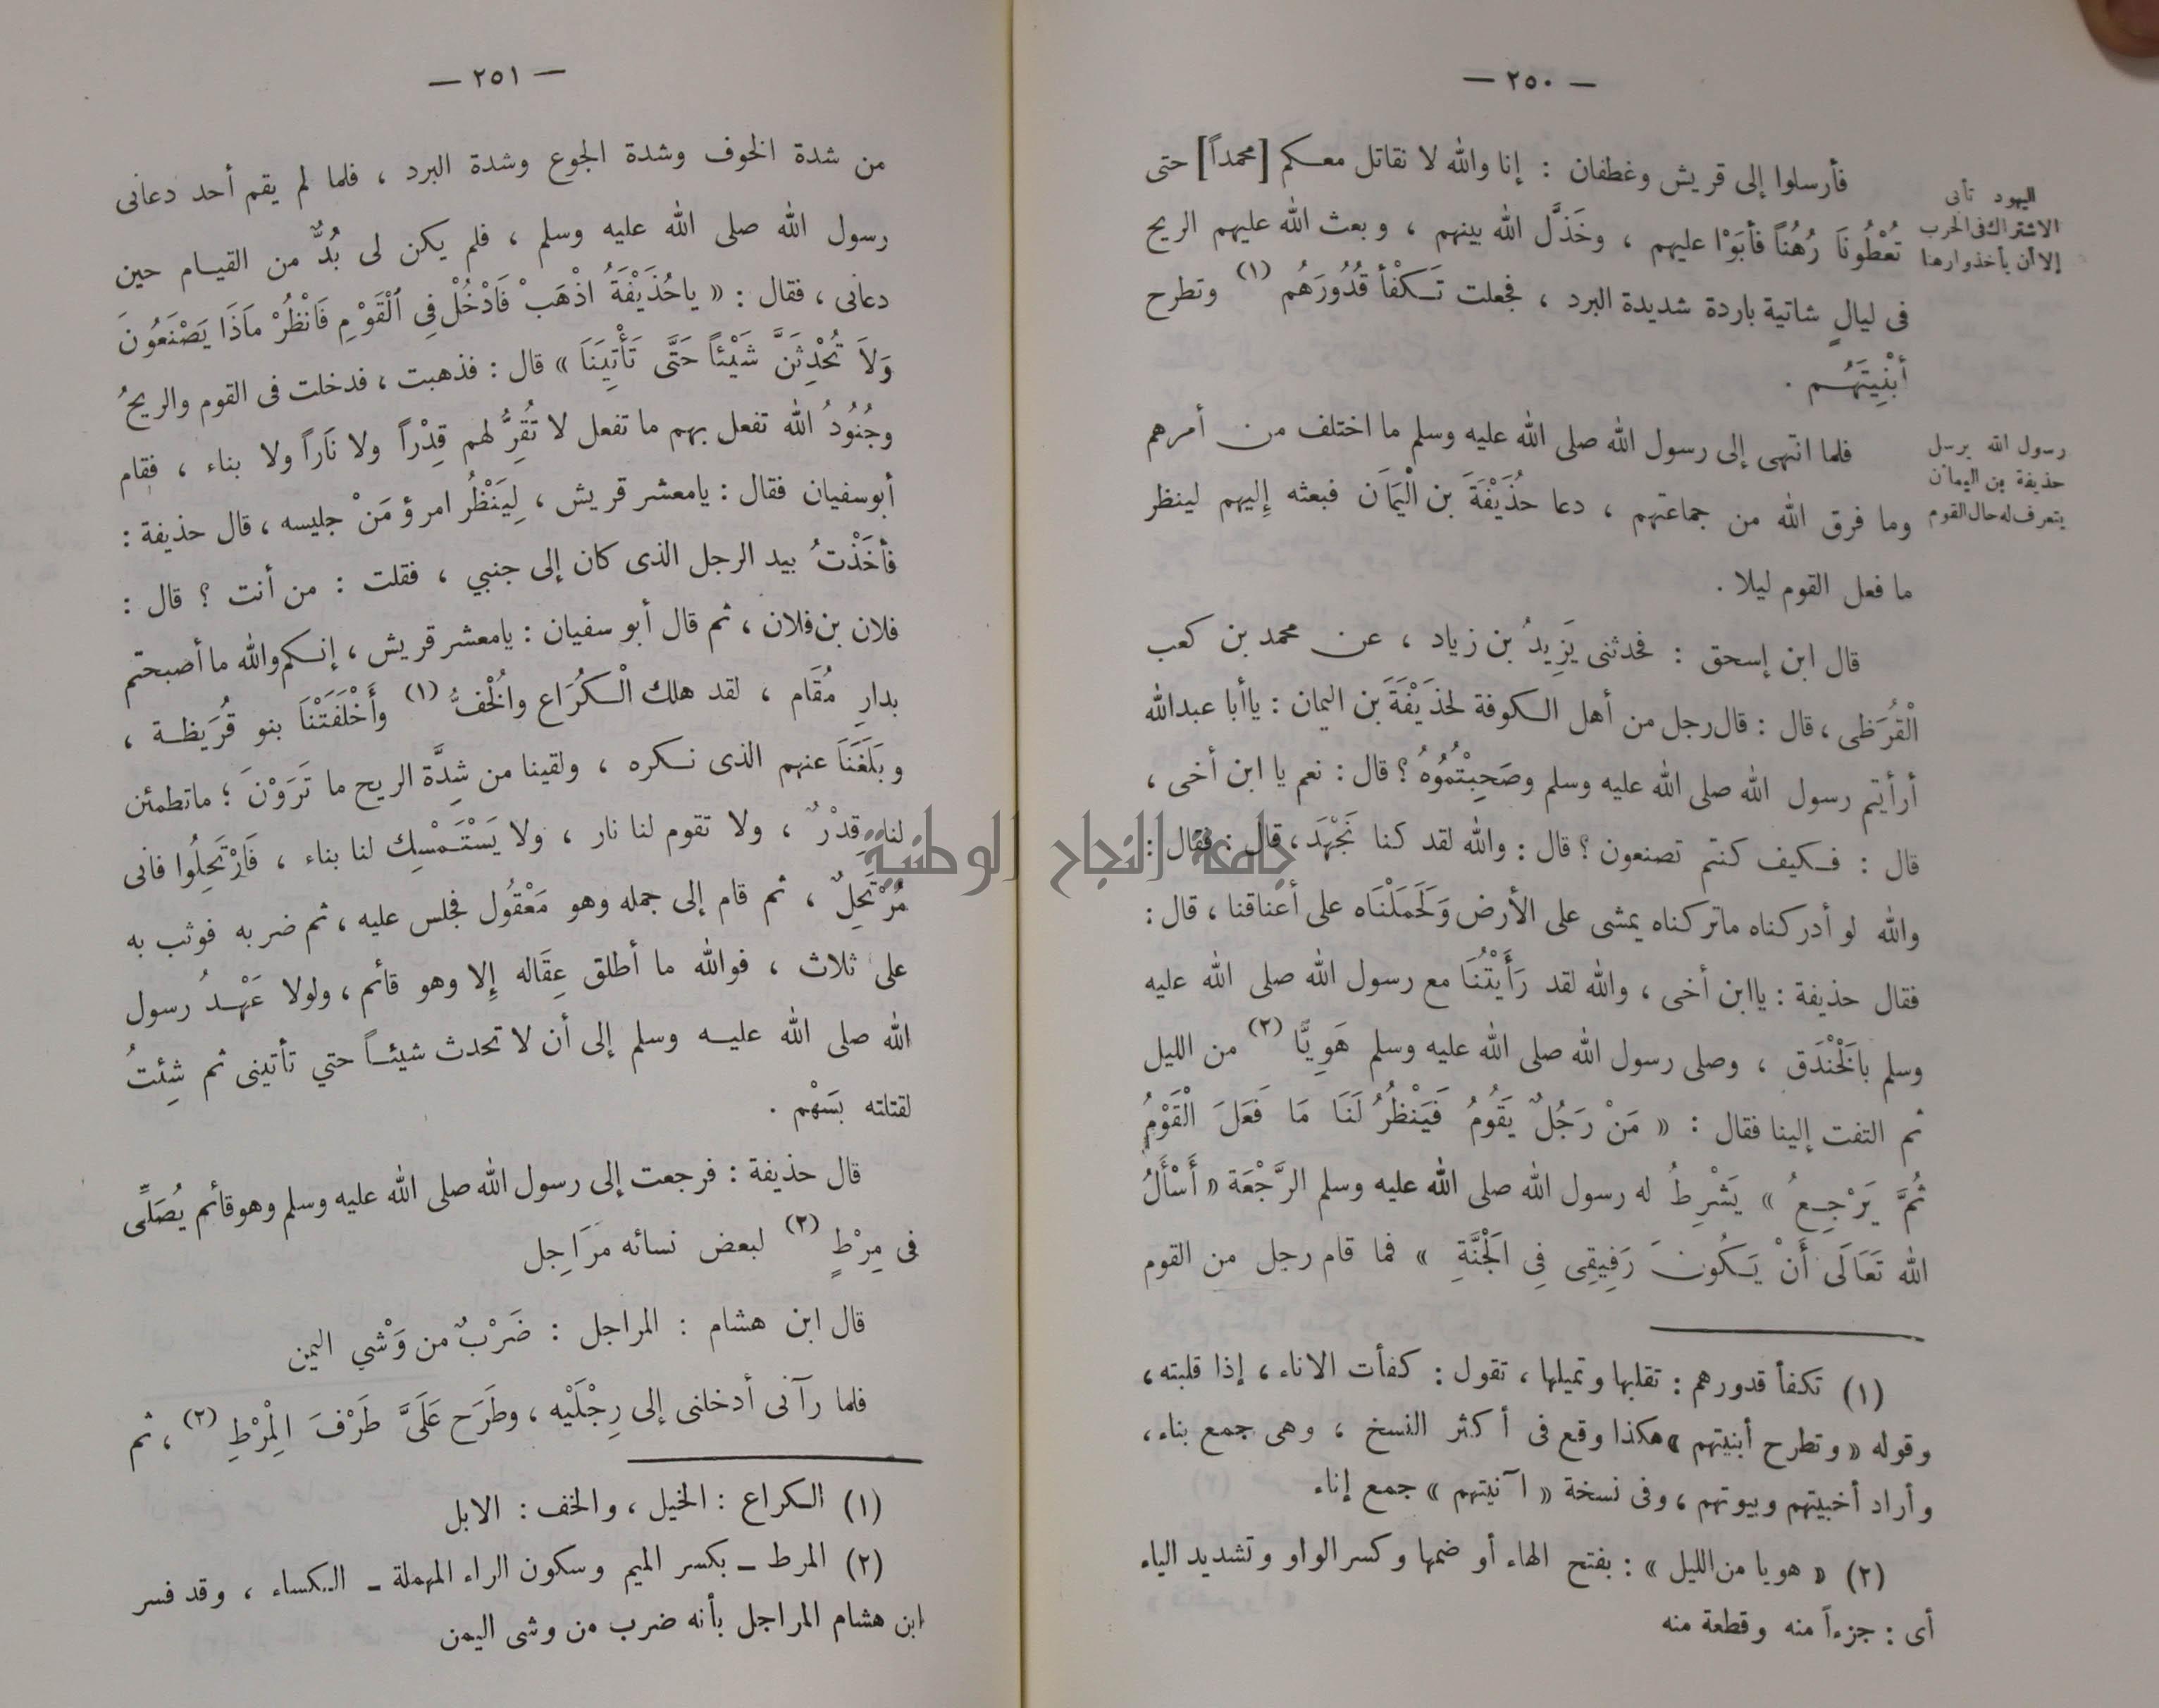 — ٢٥٠ —
فأرسلوا إلى قريش وغطفان : إنا والله لا نقاتل معكم [محمداً] حتى
تُعْطُونَا رُهُناً فأبَوْا عليهم ، وخَذَّل الله بينهم ، وبعث الله عليهم الريح
فى ليالٍ شاتية باردة شديدة البرد ، فجعلت تَكْفَأ قُدُورَهُم (١) وتطرح
أبْنِيَتَهُم .
اليهود تأبى
الاشتراك فى الحرب
إلا أن يأخذوا رهنا
فلما انتهى إلى رسول الله صلى الله عليه وسلم ما اختلف من أمرهم
وما فرق الله من جماعتهم ، دعا حُذَيْفَةَ بن الْيَمَان فبعثه إليهم لينظر
ما فعل القوم ليلا .
رسول الله يرسل
حذيفة بن اليمان
يتعرف له حال القوم
قال ابن إسحق : فحدثنى يَزِيدُ بن زياد ، عن محمد بن كعب
الْقُرَظى ، قال : قال رجل من أهل الكوفة لحذَيْفَةَ بن اليمان : يا أبا عبدالله
أرأيتم رسول الله صلى الله عليه وسلم وصَحِبْتُمُوهُ ؟ قال : نعم يا ابن أخى ،
قال : فكيف كنتم تصنعون ؟ قال : والله لقد كنا نَجْهَدَ ، قال : فقال :
والله لو أدركناه ماتركناه يمشى على الأرض وَلَحَمَلْنَاه على أعناقنا ، قال :
فقال حذيفة : يا ابن أخى ، والله لقد رَأَيْتُنَا مع رسول الله صلى الله عليه
وسلم بالْخَنْدَق ، وصلى رسول الله صلى الله عليه وسلم هَوِيًّا (٢) من الليل
ثم التفت إلينا فقال : « مَنْ رَجُلٌ يَقُومُ فَيَنْظُرُ لَنَا مَا فَعَلَ الْقَوْمُ
ثُمَّ يَرْجِعُ » يَشْرِطُ له رسول الله صلى الله عليه وسلم الرَّجْعَة « أَسْأَلُ
الله تَعَالَى أَنْ يَكُونَ رَفِيقِى فِى الْجَنَّةِ » فما قام رجل من القوم
(١) تكفأ قدورهم : تقلبها وتميلها ، تقول : كفأت الاناء ، إذا قلبته ،
وقوله « وتطرح أبنيتهم » هكذا وقع فى أكثر النسخ ، وهى جمع بناء ،
وأراد أخبيتهم وبيوتهم ، وفى نسخة « آنيتهم » جمع إناء
(٢) « هويا من الليل » : بفتح الهاء أو ضمها وكسر الواو وتشديد الياء
أى : جزءاً منه وقطعة منه
— ٢٥١ —
من شدة الخوف وشدة الجوع وشدة البرد ، فلما لم يقم أحد دعانى
رسول الله صلى الله عليه وسلم ، فلم يكن لى بُدٌّ من القيام حين
دعانى ، فقال : « ياحُذَيْفَةُ اذْهَبْ فَادْخُلْ فِي الْقَوْمِ فَانْظُرْ مَاذَا يَصْنَعُونَ
وَلاَ تُحْدِثَنَّ شَيْئاً حَتَّى تَأْتِيَنَا » قال : فذهبت ، فدخلت فى القوم والريحُ
وجُنُودُ الله تفعل بهم ما تفعل لا تُقِرُّ لهم قِدْراً ولا نَاراً ولا بناء ، فقام
أبوسفيان فقال : يامعشر قريش ، لِيَنْظُرُ امرؤ مَنْ جليسه ، قال حذيفة :
فأخَذْتُ بيد الرجل الذى كان إلى جنبي ، فقلت : من أنت ؟ قال :
فلان بن فلان ، ثم قال أبو سفيان : يامعشر قريش ، إنكم والله ما أصبحتم
بدارِ مُقَام ، لقد هلك الْكُرَاع والْخُفُّ (١) وأَخْلَفَتْنَا بنو قُرَيظة ،
وبَلَغَنَا عنهم الذى نكره ، ولقينا من شِدَّة الريح ما تَرَوْنَ ؛ ماتطمئن
لنا قدْرٌ ، ولا تقوم لنا نار ، ولا يَسْتَمْسِك لنا بناء ، فَارْتَحِلُوا فانى
مُرْتَحِلٌ ، ثم قام إلى جمله وهو مَعْقُول فجلس عليه ، ثم ضربه فوثب به
على ثلاث ، فوالله ما أطلق عِقَاله إلا وهو قائم ، ولولا عَهْدُ رسول
الله صلى الله عليه وسلم إلى أن لا تحدث شيئاً حتي تأتينى ثم شِئتُ
لقتلته بسَهْم .
قال حذيفة : فرجعت إلى رسول الله صلى الله عليه وسلم وهو قائم يُصَلِّى
فى مِرْطٍ (٢) لبعض نسائه مَرَاجِل
قال ابن هشام : المراجل : ضَرْبٌ من وَشْي اليمن
فلما رآنى أدخلنى إلى رِجْلَيْه ، وطَرَح عَلَىَّ طَرْفَ الْمِرْطِ (٢) ، ثم
(١) الكراع : الخيل ، والخف : الابل
(٢) المرط ـ بكسر الميم وسكون الراء المهملة ـ الكساء ، وقد فسر
ابن هشام المراجل بأنه ضرب من وشى اليمن
جامعة النجاح الوطنية